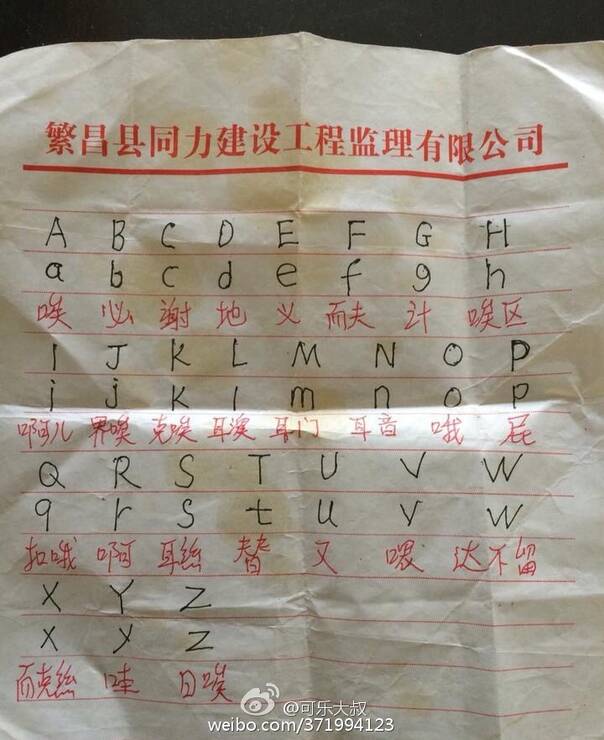 繁昌县同力建设工程监理有限公司
A B C D E F G H
a b c d e f g h
唉 必 谢 地 义 而夫 计 唉区
I J K L M N O P
i j k l m n o p
啊儿 界唉 克唉 耳漠 耳门 耳音 哦 屁
Q R S T U V W
q r s t u v w
扣哦 啊 耳丝 替 又 喂 达不留
X Y Z
x y z
而克丝 哇 日唉
@可乐大叔
weibo.com/371994123